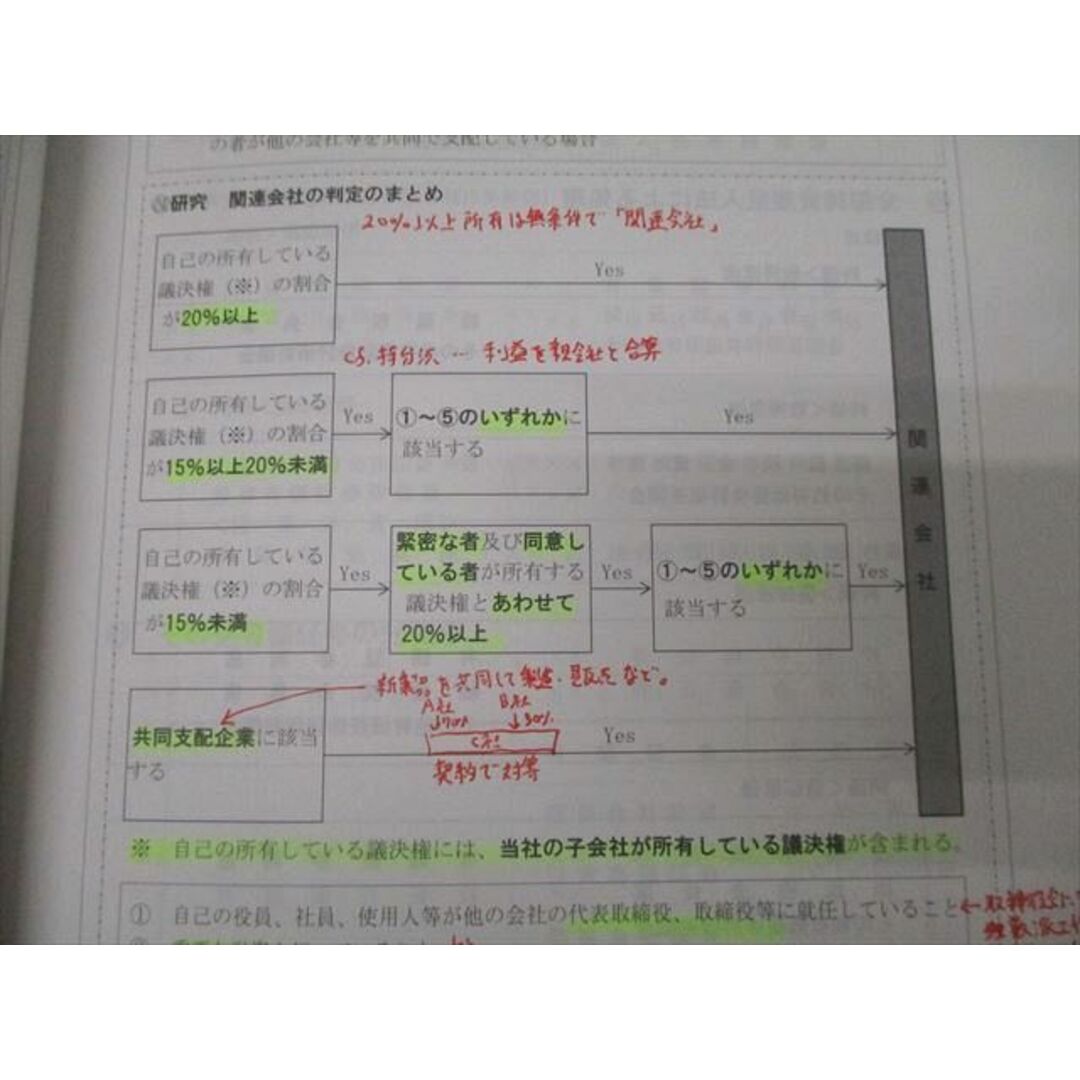 の者が他の会社等を共同で支配している場合
研究 関連会社の判定のまとめ
20%以上所有は無条件で「関連会社」
自己の所有している
議決権（※）の割合
が20%以上
Yes
cf. 持分法 … 利益を親会社と合算
自己の所有している
議決権（※）の割合
が15%以上20%未満
Yes
①～⑤のいずれかに
該当する
Yes
自己の所有している
議決権（※）の割合
が15%未満
Yes
緊密な者及び同意し
ている者が所有する
議決権とあわせて
20%以上
Yes
①～⑤のいずれかに
該当する
Yes
関連会社
新製品を共同して製造・販売など。
A社 B社
↓70% ↓30%
C社
契約で対等
共同支配企業に該当
する
Yes
※ 自己の所有している議決権には、当社の子会社が所有している議決権が含まれる。
① 自己の役員、社員、使用人等が他の会社の代表取締役、取締役等に就任していること